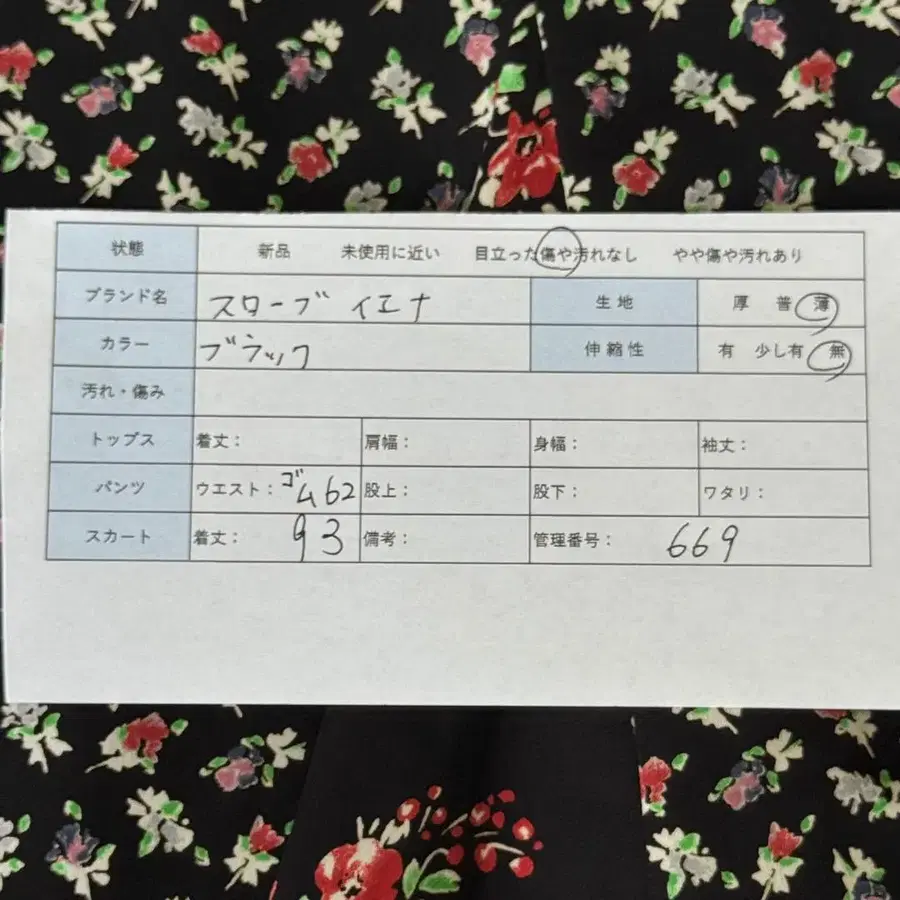 状態 新品 未使用に近い 目立った傷や汚れなし やや傷や汚れあり
ブランド名 スローブ イエナ 生地 厚 普 薄
カラー ブラック 伸縮性 有 少し有 無
汚れ・傷み
トップス 着丈: 肩幅: 身幅: 袖丈:
パンツ ウエスト: ゴム62 股上: 股下: ワタリ:
スカート 着丈: 93 備考: 管理番号: 669